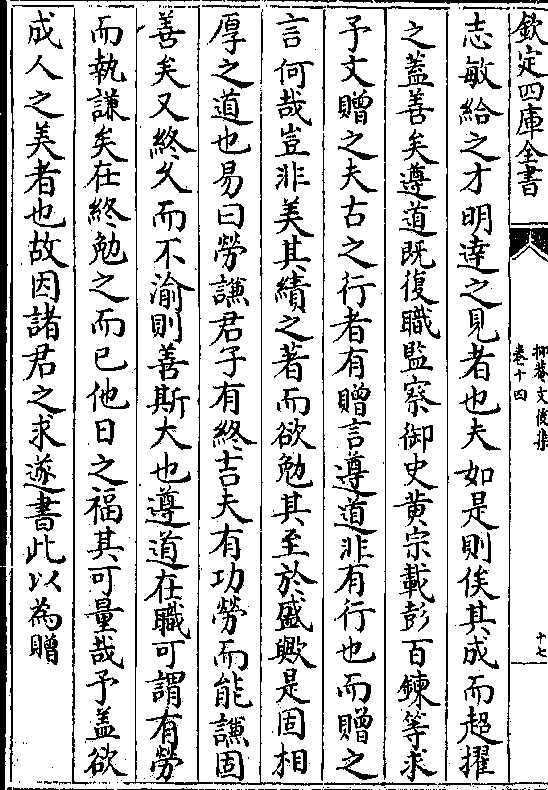 欽定四庫全書
抑菴文後集
卷十四
十七
志敏給之才明達之見者也夫如是則俟其成而超擢
之蓋善矣遵道既復職監察御史黄宗載彭百鍊等求
予文贈之夫古之行者有贈言遵道非有行也而贈之
言何哉豈非美其績之著而欲勉其至於盛歟是固相
厚之道也易曰勞謙君子有終吉夫有功勞而能謙固
善矣又終久而不渝則善斯大也遵道在職可謂有勞
而執謙矣在終勉之而已他日之福其可量哉予蓋欲
成人之美者也故因諸君之求遂書此以為贈